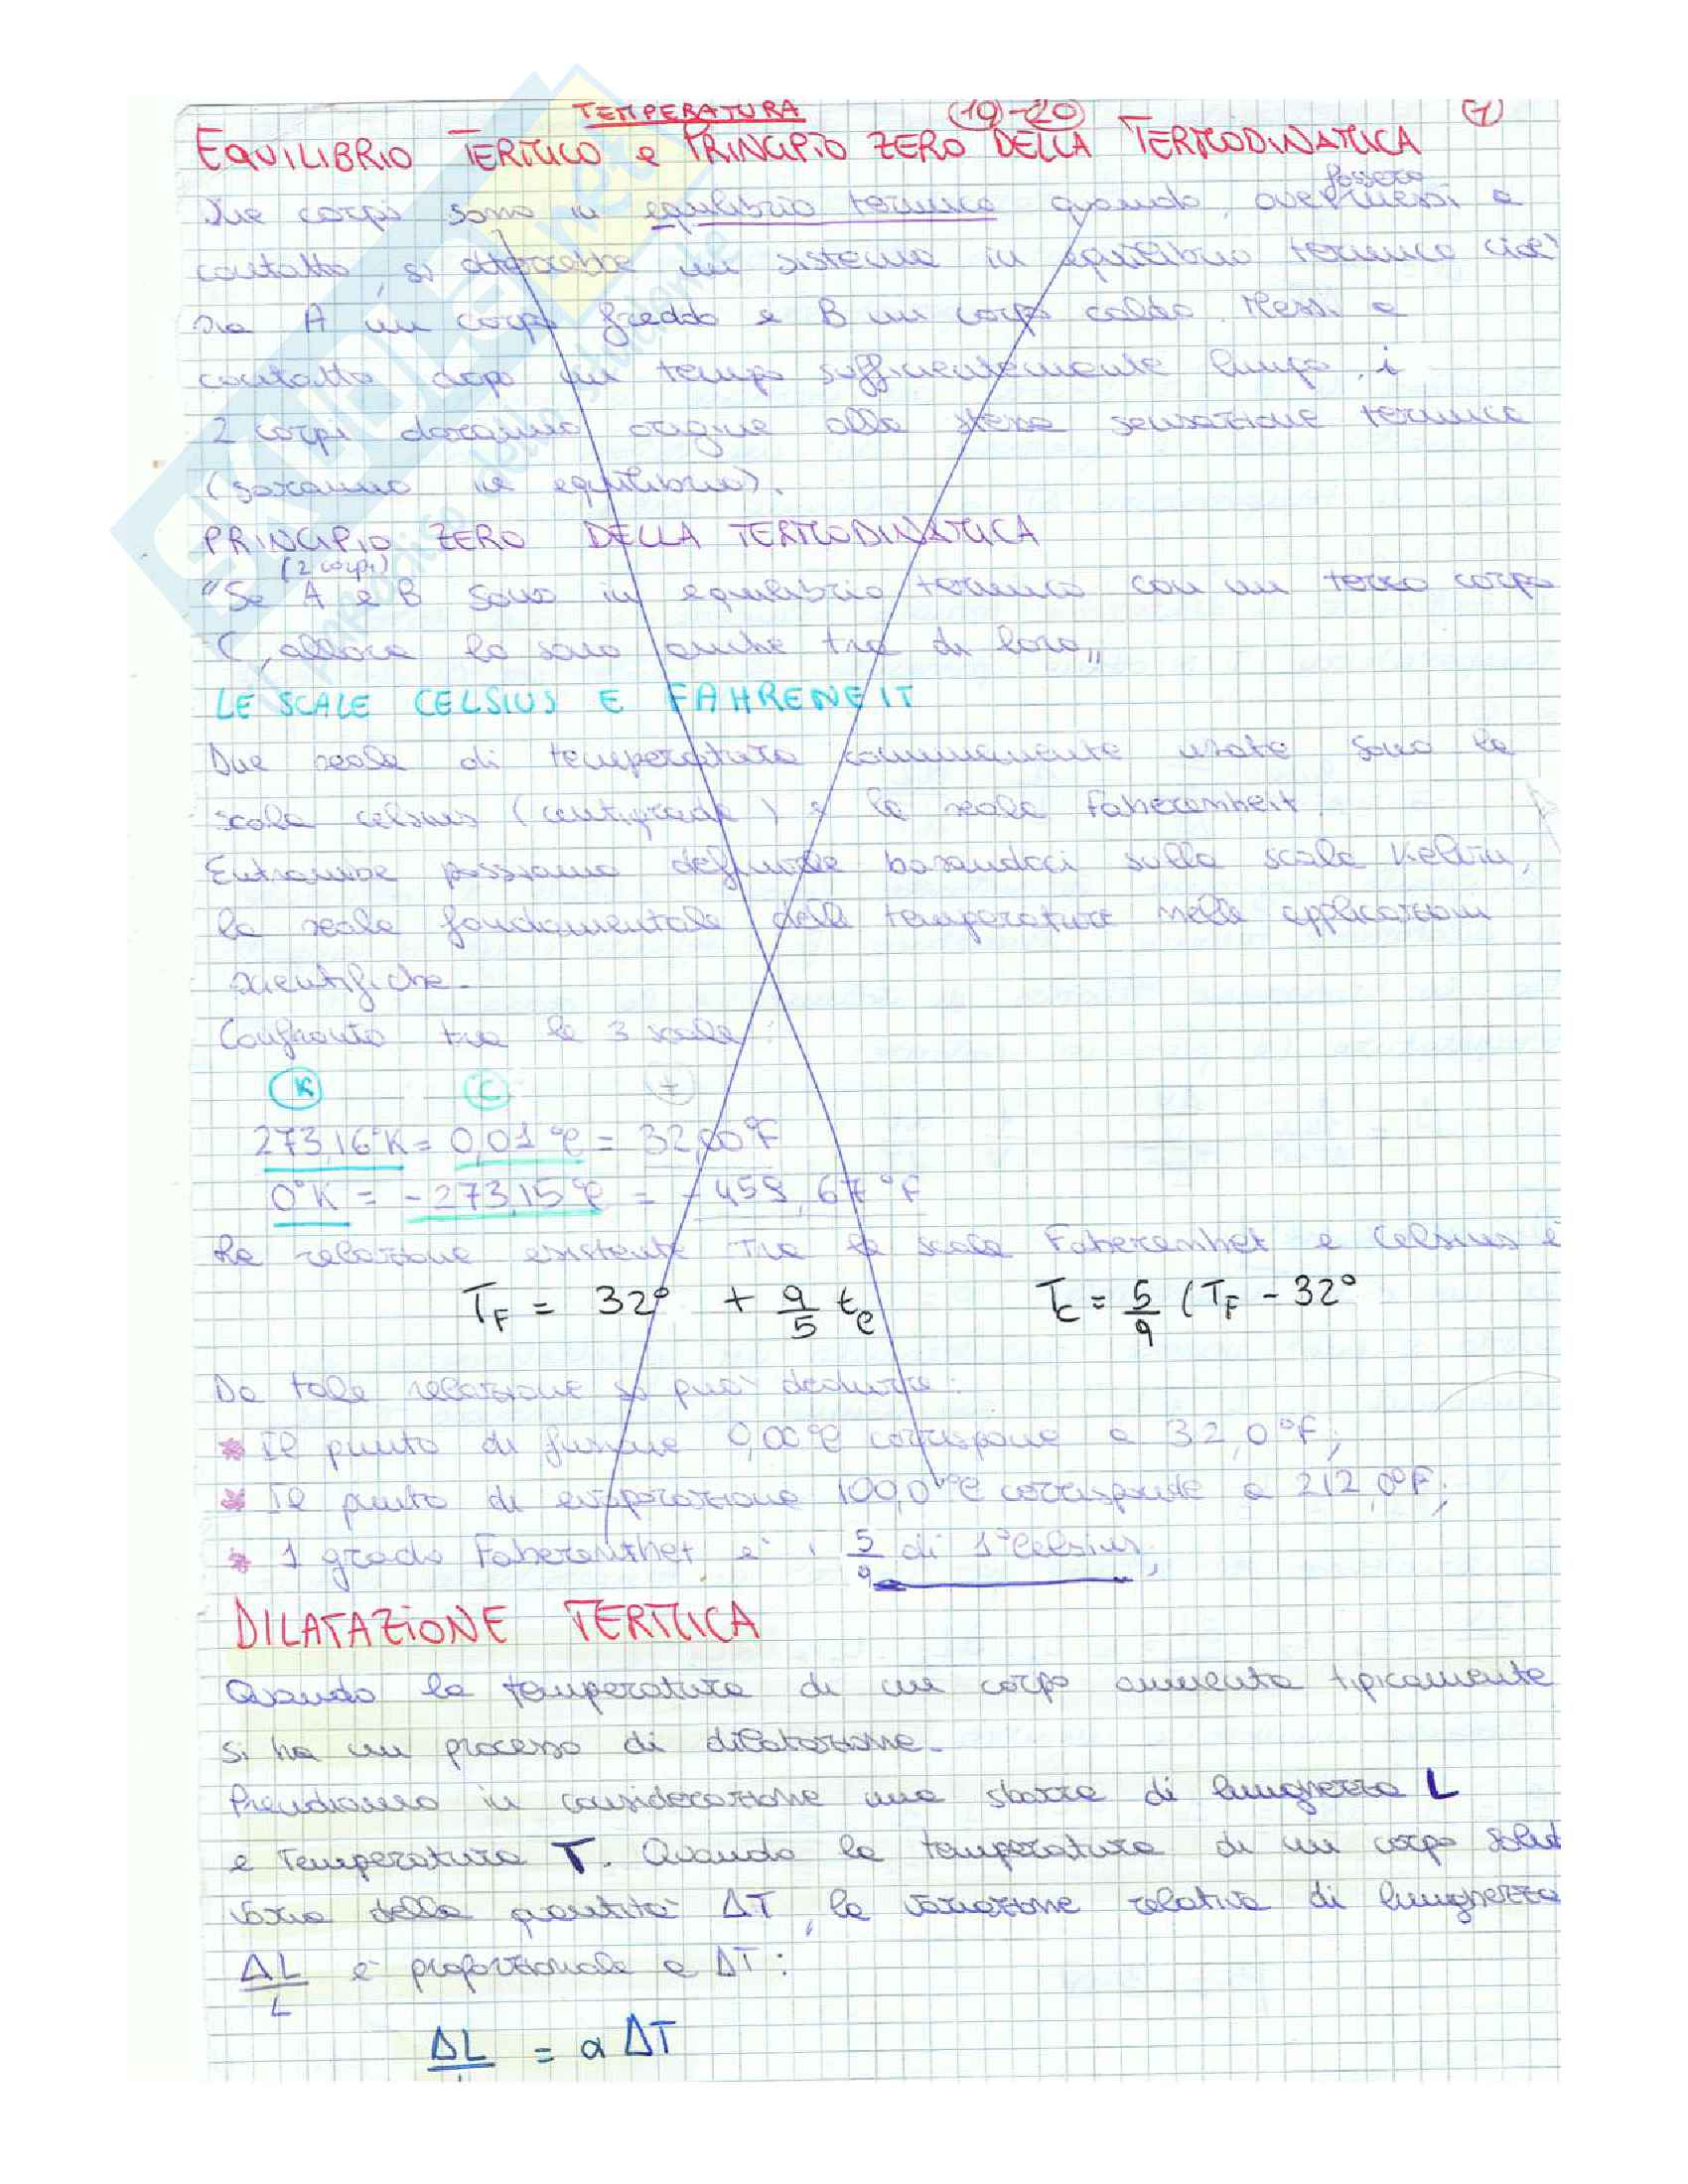 TEMPERATURA (19-20) (1)
EQUILIBRIO TERMICO e PRINCIPIO ZERO DELLA TERMODINAMICA
fossero
Due corpi sono in equilibrio termico quando, ove messi a
contatto, si otterrebbe un sistema in equilibrio termico cioè
sia A un corpo freddo e B un corpo caldo. Messi a
contatto dopo un tempo sufficientemente lungo, i
2 corpi daranno origine alla stessa sensazione termica
(saranno in equilibrio).
PRINCIPIO ZERO DELLA TERMODINAMICA
(2 corpi)
"Se A e B sono in equilibrio termico con un terzo corpo
C, allora lo sono anche tra di loro"
LE SCALE CELSIUS E FAHRENEIT
Due scale di temperatura comunemente usate sono la
scala celsius (centigrade) e la scala Faherenheit.
Entrambe possiamo definirle basandoci sulla scala Kelvin,
la scala fondamentale delle temperature nelle applicazioni
scientifiche.
Confronto tra le 3 scale:
K C F
273,16°K = 0,01°C = 32,00°F
0°K = -273,15°C = -459,67°F
La relazione esistente tra la scala Faherenhet e Celsius è
T_F = 32° + 9/5 t_c T_C = 5/9 (T_F - 32°
Da tale relazione si può dedurre:
* Il punto di fusione 0,00°C corrispone a 32,0°F;
* Il punto di evaporazione 100,0°C corrisponde a 212,0°F;
* 1 grado Faherenhet è i 5/9 di 1° Celsius;
DILATAZIONE TERMICA
Quando la temperatura di un corpo aumenta tipicamente
si ha un processo di dilatazione.
Prendiamo in considerazione una sbarra di lunghezza L
e Temperatura T. Quando la temperatura di un corpo solid
varia della quantità ΔT, la variazione relativa di lunghezza
ΔL/L è proporzionale a ΔT:
ΔL = α ΔT